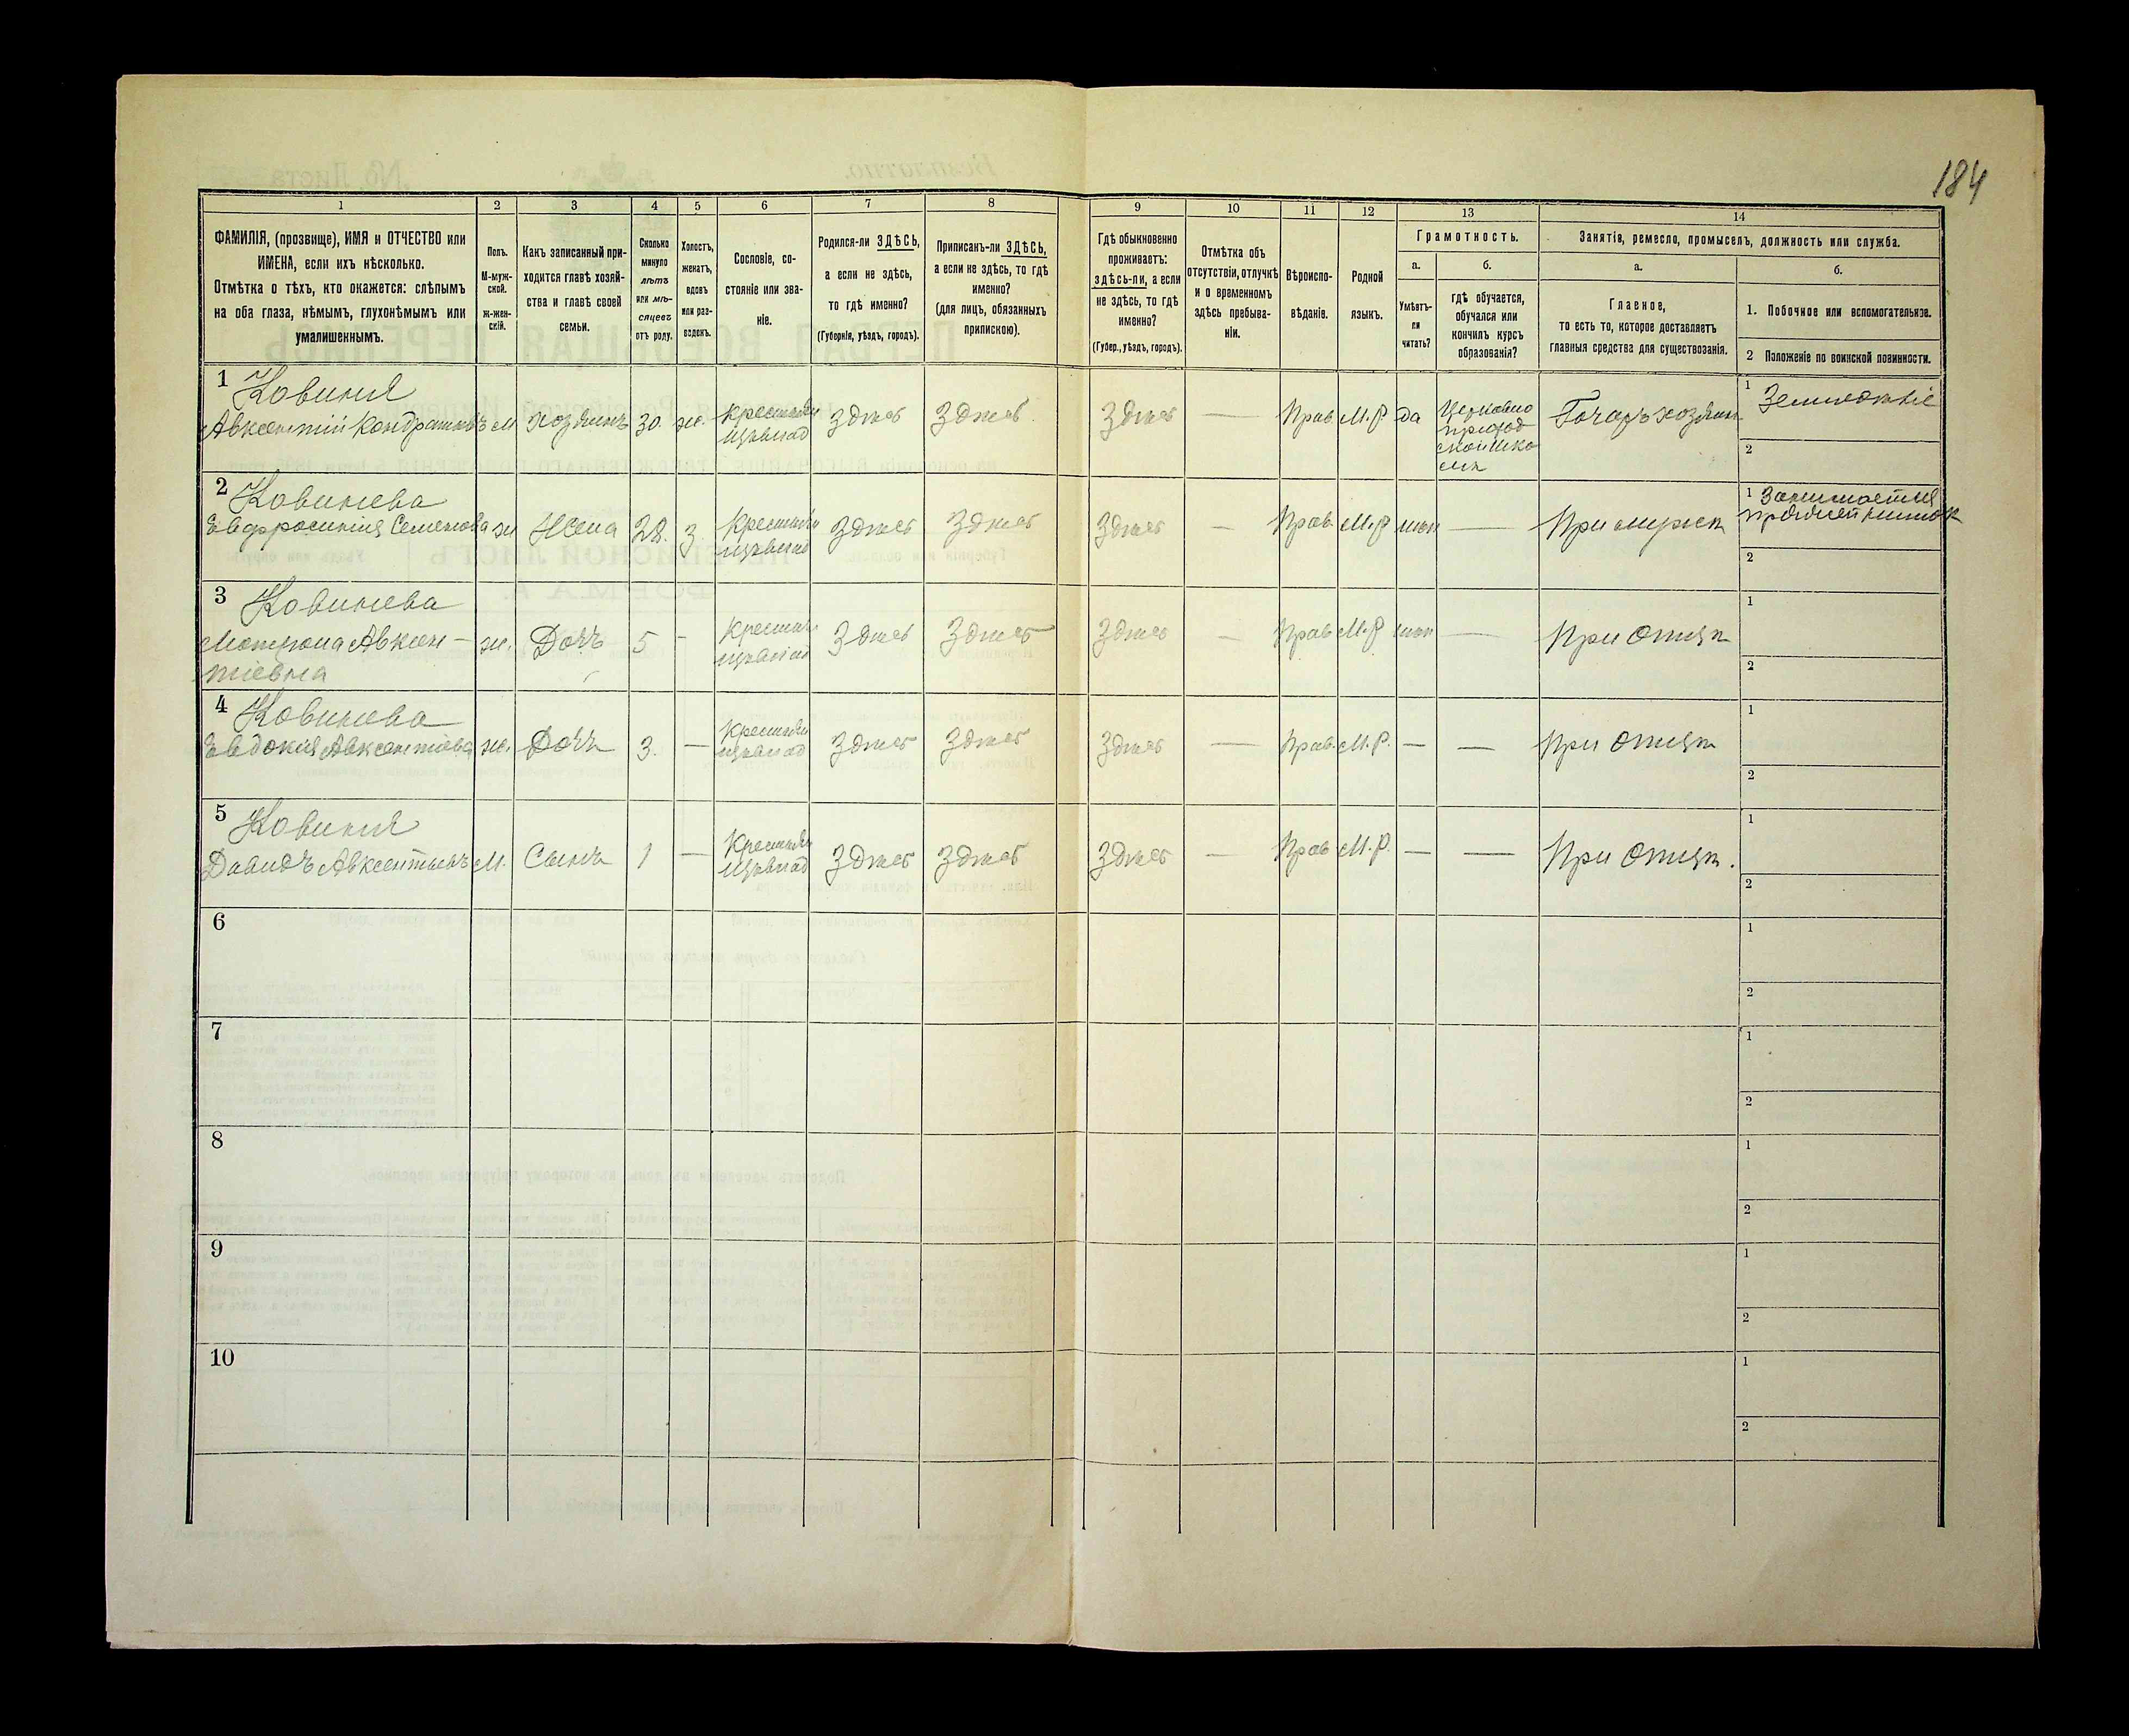 184
1 2 3 4 5 6 7 8 9 10 11 12 13 14
ФАМИЛІЯ, (прозвище), ИМЯ и ОТЧЕСТВО или
ИМЕНА, если ихъ нѣсколько.
Отмѣтка о тѣхъ, кто окажется: слѣпымъ
на оба глаза, нѣмымъ, глухонѣмымъ или
умалишеннымъ.
Полъ.
М-муж-
ской.
ж-жен-
скій.
Какъ записанный при-
ходится главѣ хозяй-
ства и главѣ своей
семьи.
Сколько
минуло
лѣтъ
или мѣ-
сяцевъ
отъ роду.
Холостъ,
женатъ,
вдовъ
или раз-
веденъ.
Сословіе, со-
стояніе или зва-
ніе.
Родился-ли ЗДѢСЬ,
а если не здѣсь,
то гдѣ именно?
(Губернія, уѣздъ, городъ).
Приписанъ-ли ЗДѢСЬ,
а если не здѣсь, то гдѣ
именно?
(для лицъ, обязанныхъ
припискою).
Гдѣ обыкновенно
проживаетъ:
здѣсь-ли, а если
не здѣсь, то гдѣ
именно?
(Губер., уѣздъ, городъ).
Отмѣтка объ
отсутствіи, отлучкѣ
и о временномъ
здѣсь пребыва-
ніи.
Вѣроиспо-
вѣданіе.
Родной
языкъ.
Грамотность.
а.
Умѣетъ-
ли
читать?
б.
гдѣ обучается,
обучался или
кончилъ курсъ
образованія?
Занятіе, ремесло, промыселъ, должность или служба.
а.
Главное,
то есть то, которое доставляетъ
главныя средства для существованія.
б.
1. Побочное или вспомогательное.
2 Положеніе по воинской повинности.
1 Ковиня
Авксентій Кондратовъ м Хозяинъ 30. ж. Крестьян Здѣсь Здѣсь Здѣсь — Прав. М.Р. да Церковно Гочаръ хозяин 1 Земледѣліе
приход
ской шко
лѣ
2
2 Ковинева
Евфросинія Семенова ж Жена 28. З Крестьян Здѣсь Здѣсь Здѣсь — Прав М.Р нѣт — При мужѣ 1 Занимается
пряжей нитокъ
2
3 Ковинева
Мотрона Авксен- ж. Дочь 5 — Крестьян Здѣсь Здѣсь Здѣсь — Прав М.Р нѣт — При Отцѣ 1
тіевна
2
4 Ковинева
Евдокія Авксентіева ж. Дочь 3. — Крестьян Здѣсь Здѣсь Здѣсь — Прав. М.Р. — — При Отцѣ 1
2
5 Ковиня
Давидъ Авксентьевъ М. Сынъ 1 — Крестьян Здѣсь Здѣсь Здѣсь — Прав М.Р. — — При Отцѣ. 1
2
6 1
2
7 1
2
8 1
2
9 1
2
10 1
2